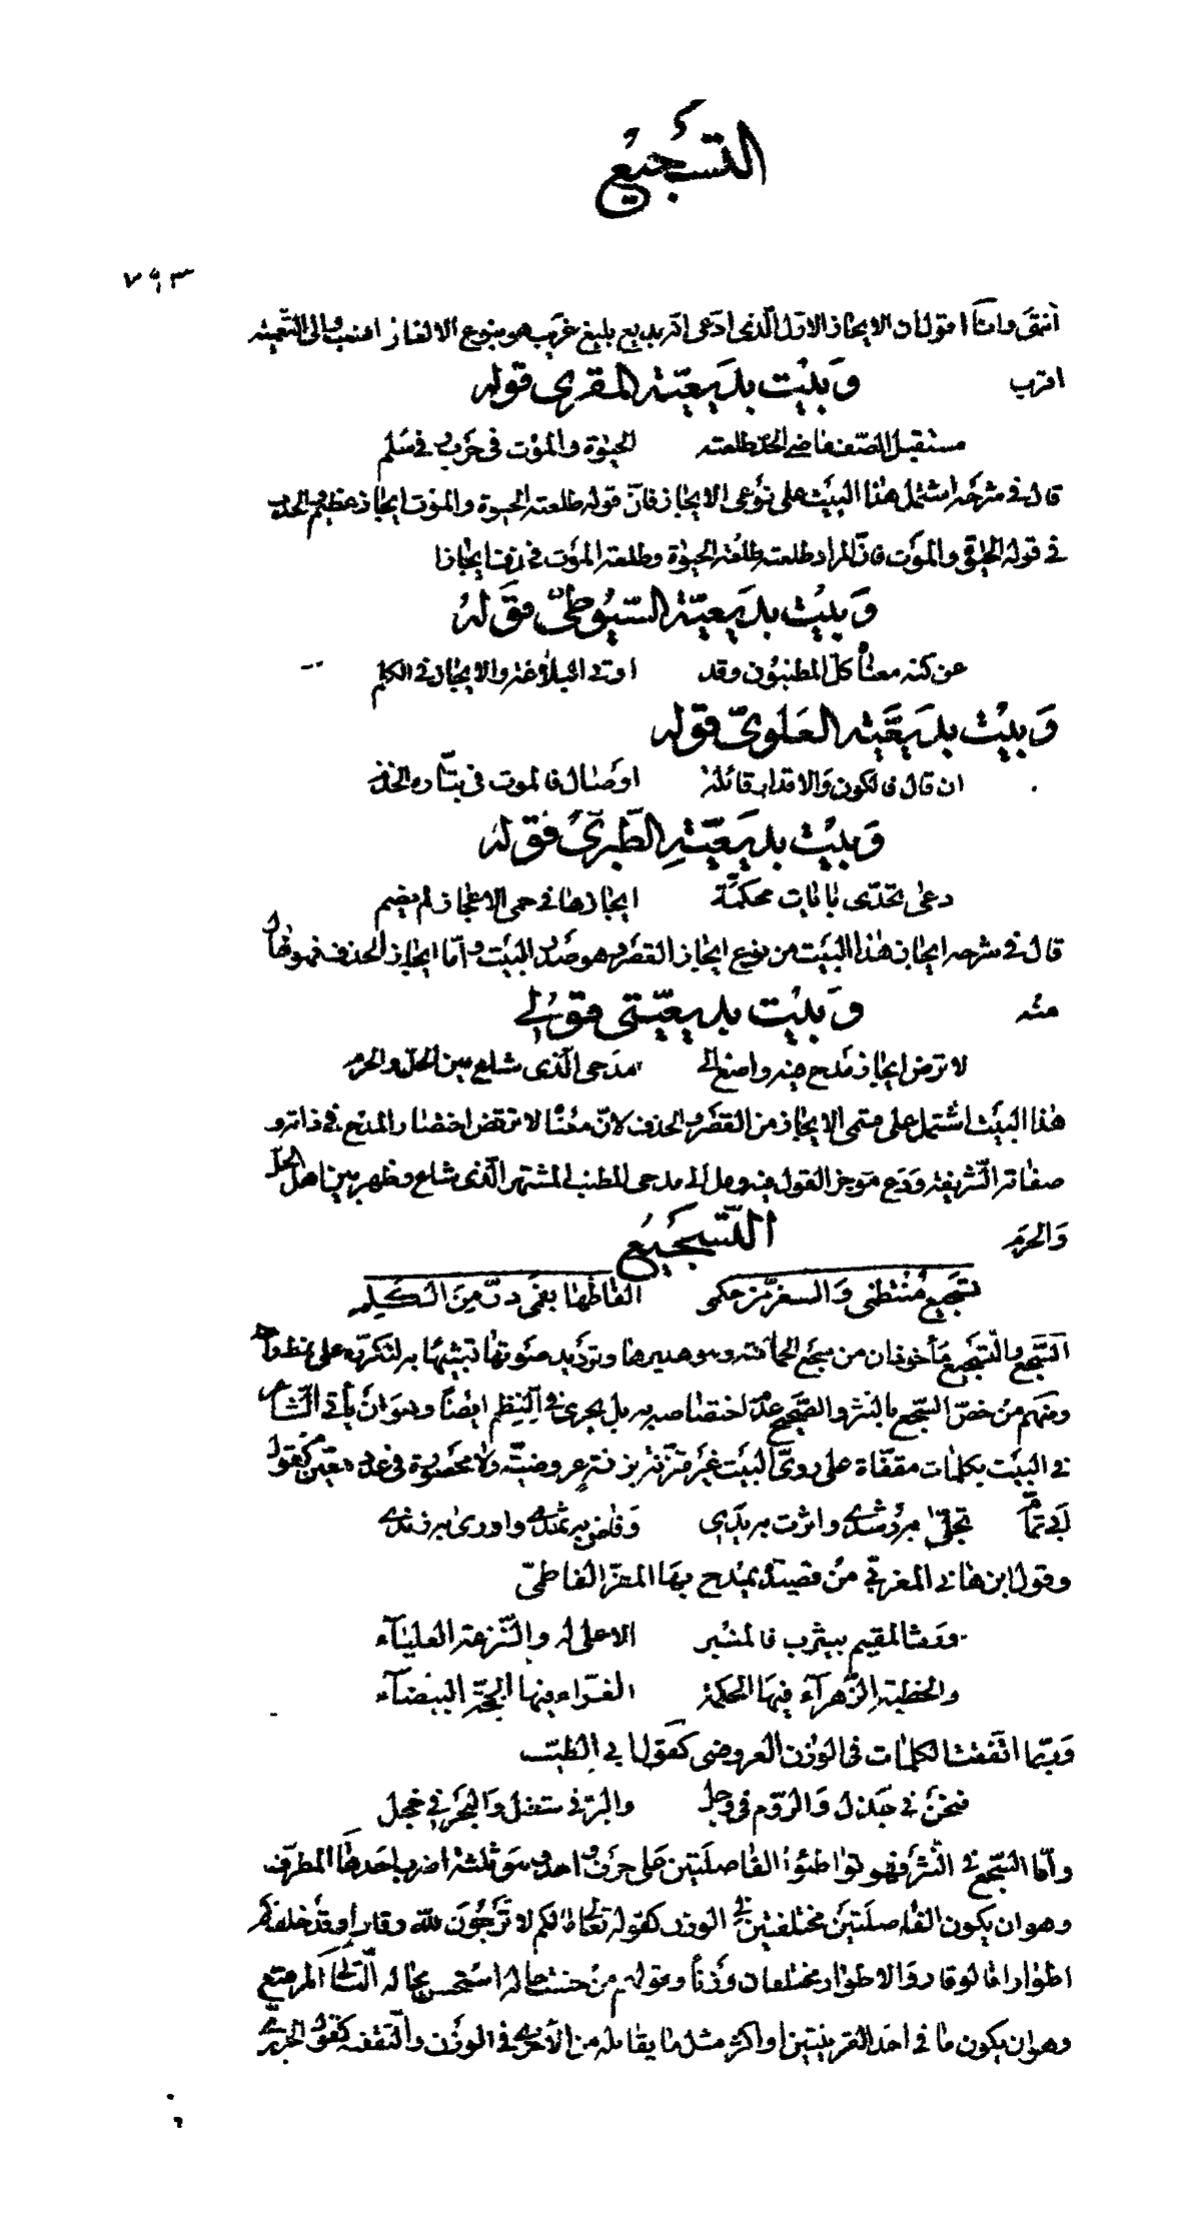 التسجيع
٧٩٣
انتهى وانا اقول ان الايجاز الاول الذى ادعى انه بديع بليغ غريب هو بنوع الالغاز اعنب والى التعمية
اقرب
وبيت بديعية المقرى قوله
مستقبل الصف ماضى الحد طلعته الحيوة والموت فى حرب وفى سلم
قال فى شرحه اشتمل هذا البيت على نوعى الايجاز فان قوله طلعته الحيوة والموت ايجاز عظيم والحذف
فى قوله الحيوة والموت فان المراد طلعته طلعة الحيوة وطلعة الموت فحذف ايجازا
وبيت بديعية السيوطى فقوله
عن كنه معناه كل المطنبون وقد اوتى البلاغة والايجاز فى الكلم
وبيت بديعية العلوى قوله
ان قال فالكون والاقدار قائلة اوصال فالموت فى بتاره الخذم
وبيت بديعية الطبرى فقوله
دعى تحدى بايات محكمة ايجازها فى حمى الاعجاز لم يضم
قال فى شرحه ايجاز هذا البيت من نوع ايجاز القصر وهو صدر البيت واما ايجاز الحذف فهو فها
منه
وبيت بديعيتى فقولى
لا ترض ايجاز مدح فيه واصغ الى مدحى الذى شاع بين الحل والحرم
هذا البيت اشتمل على قسمى الايجاز من القصر والحذف لان معناه لا ترتض اختصار المدح فى ذاته و
صفاته الشريفة ودع موجز القول فيه ومل الى مدحى المطنب المشتهر الذى شاع وظهر بين اهل الحل
والحرم
التسجيع
تسجيع منتظمى والسغر من حكمى الفاظها بفمى در من الكلم
السجع والتسجيع مأخوذان من سجع الحمامة وهو هديرها وترديد صوتها تشبيها به لتكرره على نمط واحد
ومنهم من خص السجع بالنثر والصحيح عدم اختصاصه به بل يجرى فى النظم ايضا وهو ان يأتى الشاعر
فى البيت بكلمات مقفاة على روى البيت غير متزنة بزنة عروضية ولا محصورة فى عدد معين كقول
ابى تمام تجلى به رشدى واثرت به يدى وفاض به ثمدى واورى به زندى
وقول ابن هانى المغربى من قصيدة يمدح بها المعز الفاطمى
وقفت المقيم بيثرب فالمنبر الاعلى له والترعة العلياء
والخطبة الزهراء فيها الحكمة الغراء فيها الحجة البيضاء
وربما اتفقت الكلمات فى الوزن العروضى كقول ابى الطيب
فنحن فى جذل والروم فى وجل والبر فى شغل والبحر فى خجل
واما السجع فى النثر فهو تواطئ الفاصلتين على حرف واحد وهو ثلثة اضرب احدها المطرف
وهو ان يكون الفاصلتين مختلفتين فى الوزن كقوله تعالى ما لكم لا ترجون لله وقارا وقد خلقكم
اطوارا فالوقار والاطوار مختلفان وزنا وقولهم من حسنت حاله استحسن محاله الثانى المرصع
وهو ان يكون ما فى احد القرينتين او اكثره مثل ما يقابله من الاخرى فى الوزن والتقفية كقول الحريرى